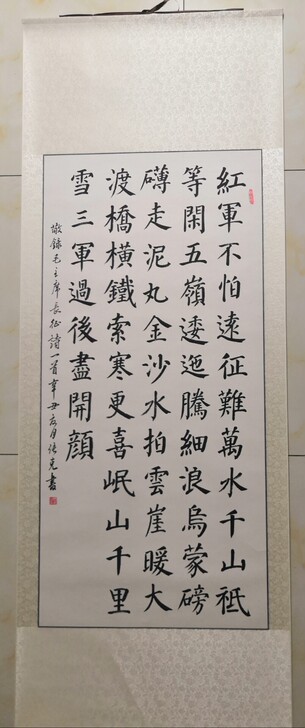 紅軍不怕遠征難萬水千山祗
等閑五嶺逶迤騰細浪烏蒙磅
礴走泥丸金沙水拍雲崖暖大
渡橋橫鐵索寒更喜岷山千里
雪三軍過後盡開顔
敬錄毛主席長征詩一首辛丑